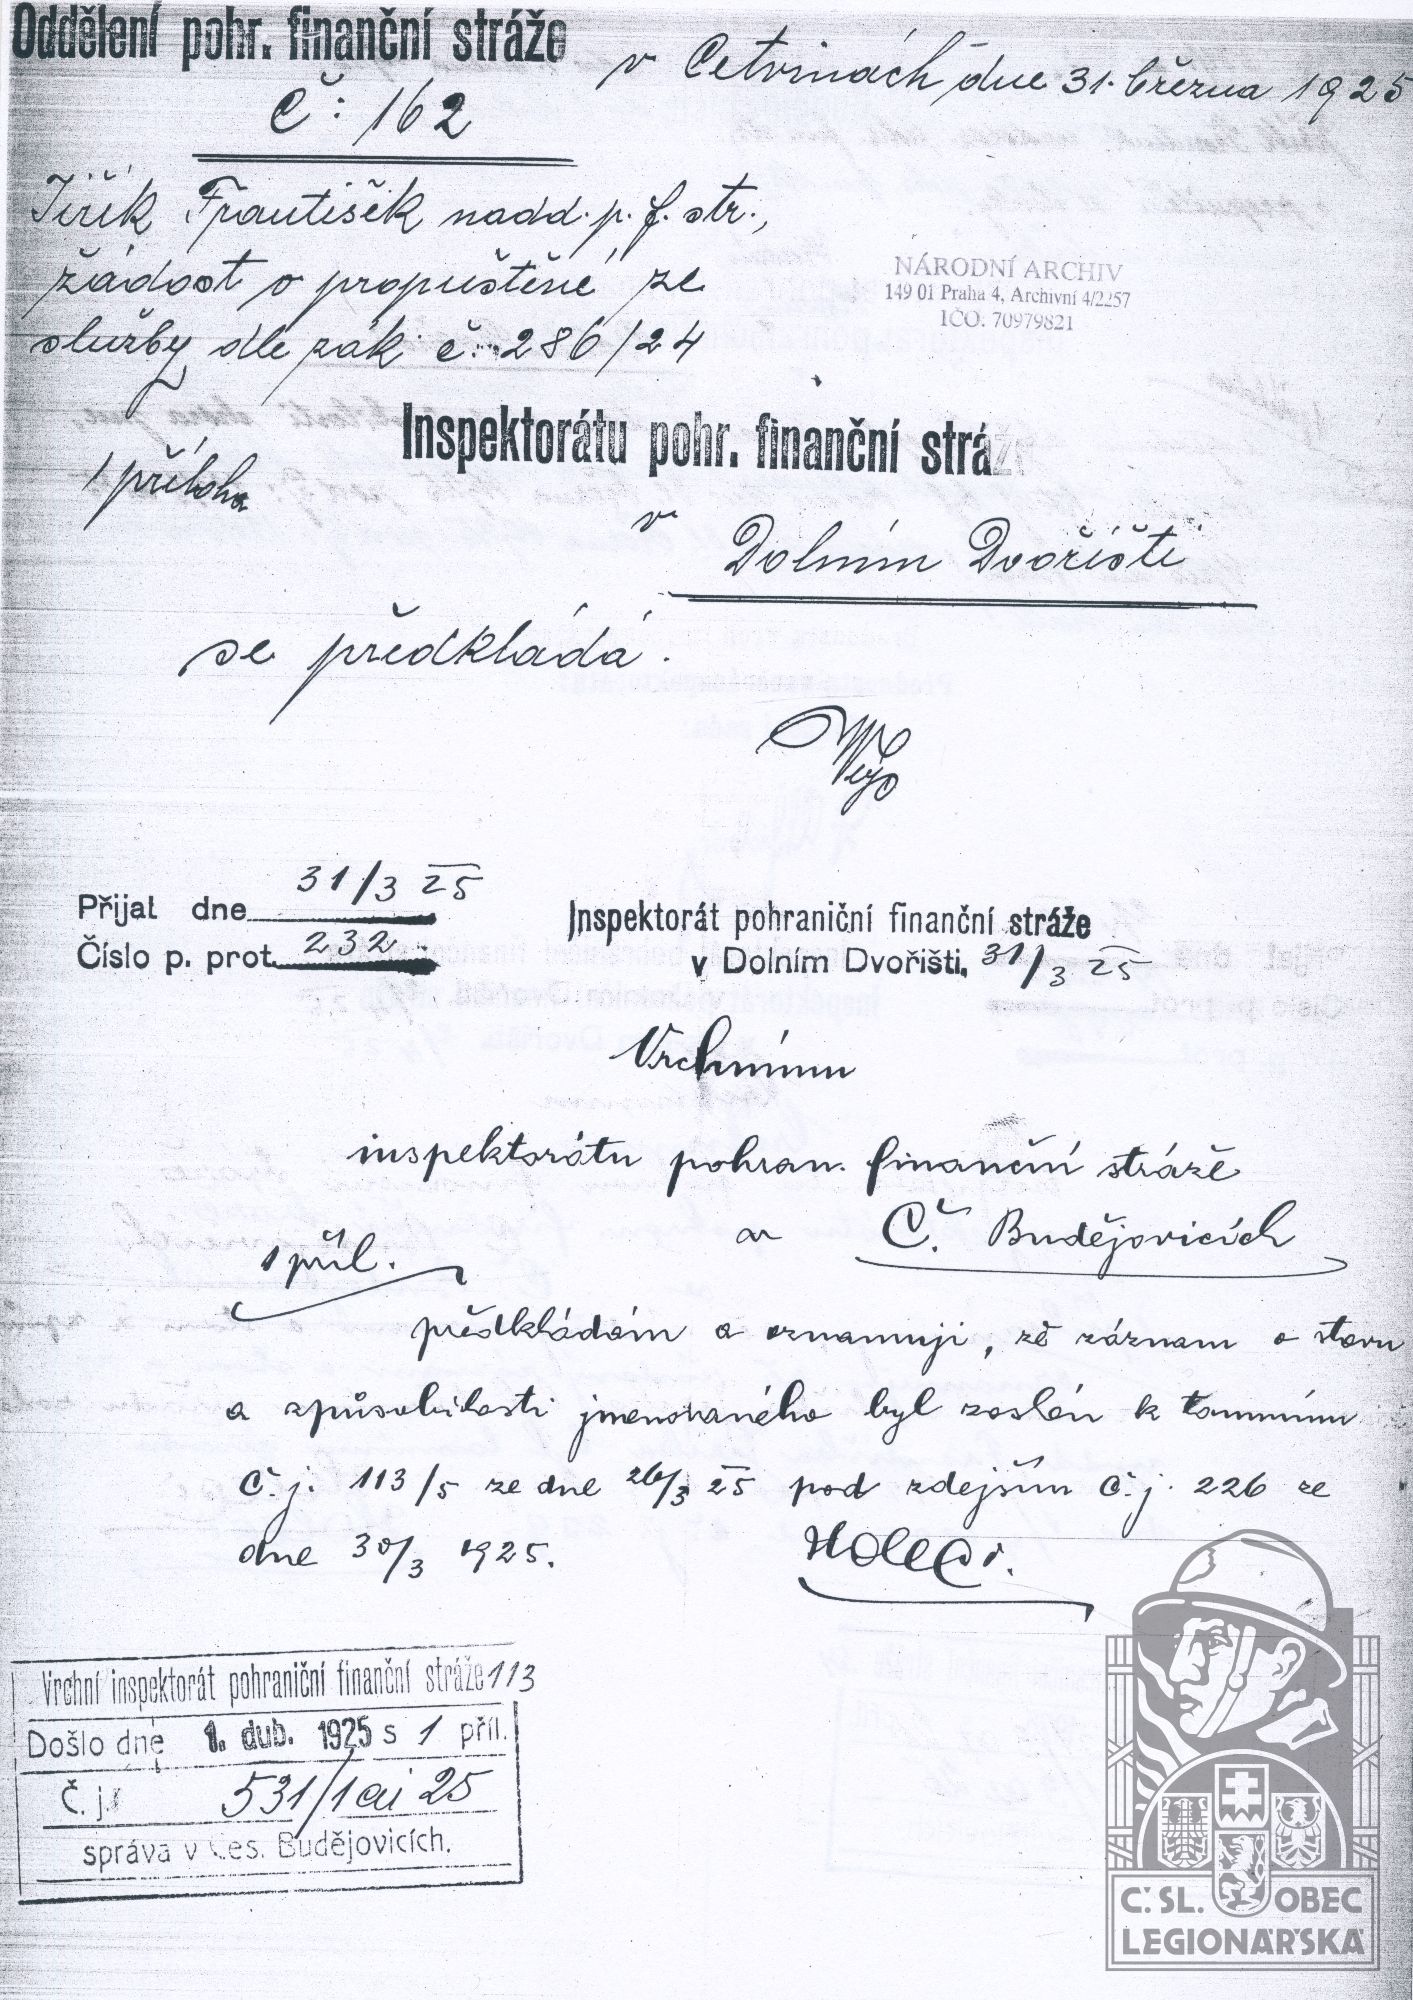 Oddělení pohr. finanční stráže
v Cetvinách dne 31. března 1925
č: 162
Jiřík František nadd. p. f. str.,
žádost o propuštěné ze
služby dle zák. č. 286/24
NÁRODNÍ ARCHIV
149 01 Praha 4, Archivní 4/2257
IČO: 70979821
Inspektorátu pohr. finanční stráže
1 příloha
v Dolním Dvořišti
se předkládá.
Přijal dne 31/3 25
Číslo p. prot. 232
Inspektorát pohraniční finanční stráže
v Dolním Dvořišti, 31/3 25
Vrchnímu
inspektorátu pohran. finanční stráže
v Č. Budějovicích
1 příl.
předkládám a oznamuji, že záznam o stavu
a způsobilosti jmenovaného byl zaslán k tamnímu
č. j. 113/5 ze dne 26/3 25 pod zdejším č. j. 226 ze
dne 30/3 1925.
Vrchní inspektorát pohraniční finanční stráže 113
Došlo dne 1. dub. 1925 s 1 příl.
Č. j. 531/1 ai 25
správa v Čes. Budějovicích.
Č. SL. OBEC
LEGIONÁŘSKÁ